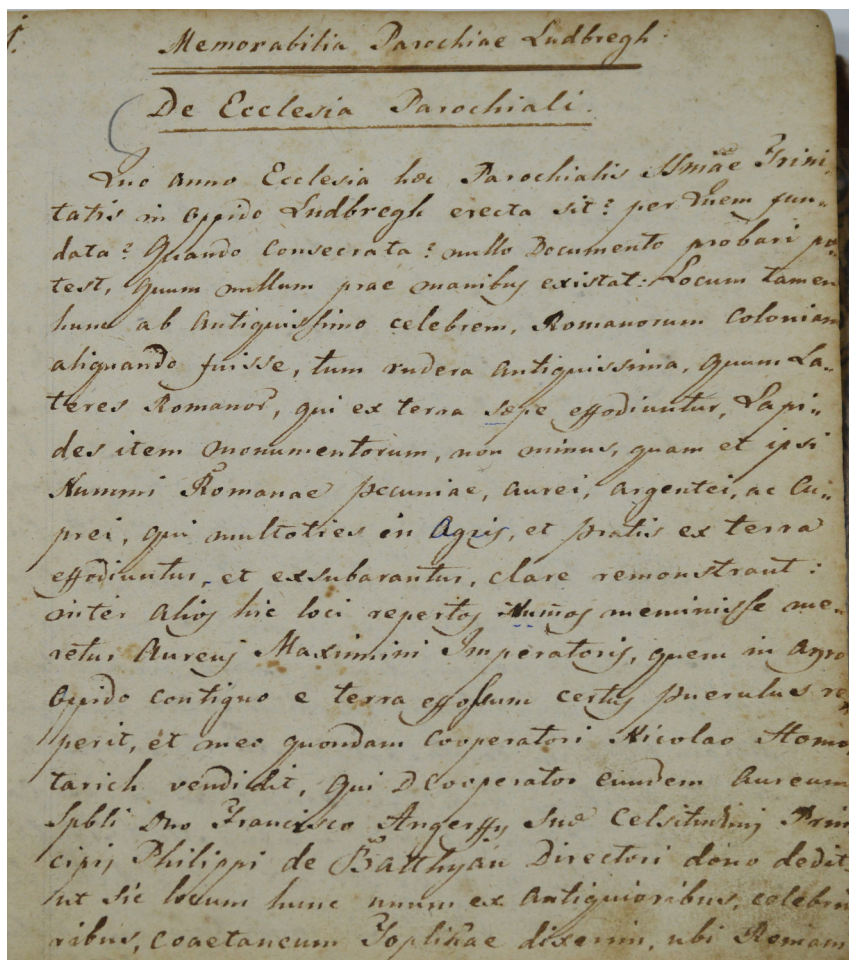 1.
Memorabilia Parochiae Ludbregh:
De Ecclesia Parochiali.
Quo anno Ecclesia haec Parochialis SSmae Trini„
tatis in oppido Ludbregh erecta sit? per Quem fun„
data? Quando Consecrata? nullo Documento probari po„
test, quum nullum prae manibus existat: Locum tamen
hunc ab antiquissimo celebrem, Romanorum Coloniam
aliquando fuisse, tum rudera antiquissima, quum La„
teres Romanor, qui ex terra saepe effodiuntur, Lapi„
des item monumentorum, non minus, quam et ipsi
Nummi Romanae pecuniae, aurei, argentei, ac Cu„
prei, qui multoties in Agris, et pratis ex terra
effodiuntur, et exsubarantur, clare remonstrant:
inter alios hic loci repertos Numos meminisse me„
retur Aureus Maximini Imperatoris, quem in agro
oppido contiguo e terra effossum certus puerulus re„
perit, et meo quondam Cooperatori Nicolao Homo„
tarich vendidit, qui D Cooperator eundem aureum
Spbli Dno Francisco Angerffy Suae Celsitudinis Prin
cipis Philippi de Batthyán Directori dono dedit,
ut sic locum hunc unum ex antiquioribus, celebri
ribus, coaetaneum Toplikae dixerim, ubi Romam